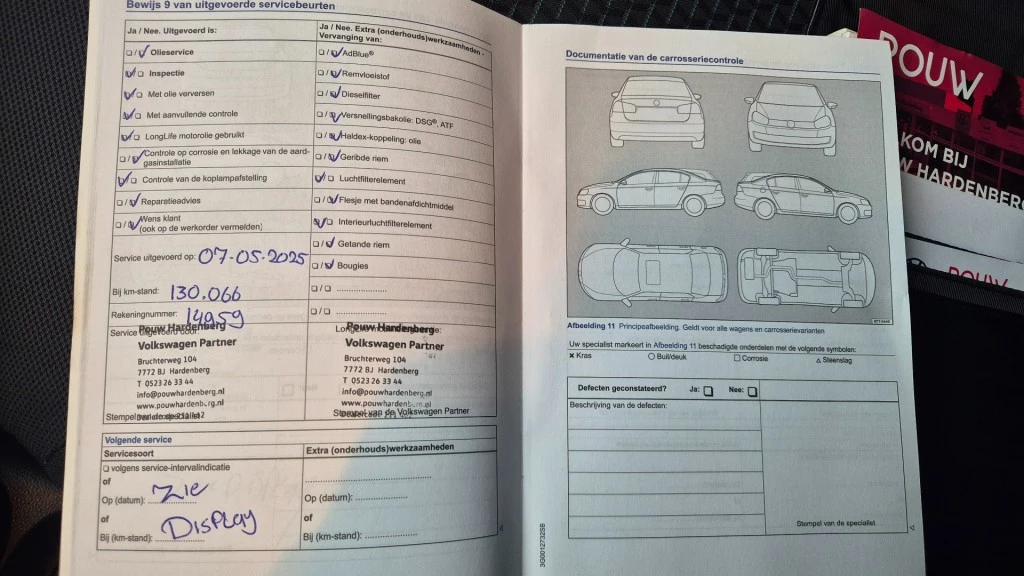 Bewijs 9 van uitgevoerde servicebeurten
Ja / Nee. Uitgevoerd is:
Ja / Nee. Extra (onderhouds)werkzaamheden - Vervanging van:
Olieservice
AdBlue®
Inspectie
Remvloeistof
Met olie verversen
Dieselfilter
Met aanvullende controle
Versnellingsbakolie: DSG®, ATF
LongLife motorolie gebruikt
Haldex-koppeling: olie
Controle op corrosie en lekkage van de aard-
gasinstallatie
Geribde riem
Controle van de koplampafstelling
Luchtfilterelement
Reparatieadvies
Flesje met bandenafdichtmiddel
Wens klant
(ook op de werkorder vermelden)
Interieurluchtfilterelement
Getande riem
Bougies
Service uitgevoerd op: 07-05-2025
Bij km-stand: 130.066
Rekeningnummer: 14959
Service uitgevoerd door:
Pouw Hardenberg
Volkswagen Partner
Bruchterweg 104
7772 BJ Hardenberg
T 0523 26 33 44
info@pouwhardenberg.nl
www.pouwhardenberg.nl
Stempel van de specialist
Pouw Hardenberg
Volkswagen Partner
Bruchterweg 104
7772 BJ Hardenberg
T 0523 26 33 44
info@pouwhardenberg.nl
www.pouwhardenberg.nl
Stempel van de Volkswagen Partner
Volgende service
Servicesoort
Extra (onderhouds)werkzaamheden
volgens service-intervalindicatie
of
Op (datum): Zie
of
Bij (km-stand): Display
Op (datum):
of
Bij (km-stand):
Documentatie van de carrosseriecontrole
Afbeelding 11 Principeafbeelding. Geldt voor alle wagens en carrosserievarianten
Uw specialist markeert in Afbeelding 11 beschadigde onderdelen met de volgende symbolen:
× Kras ○ Buil/deuk □ Corrosie △ Steenslag
Defecten geconstateerd? Ja: Nee:
Beschrijving van de defecten:
Stempel van de specialist
3G0012732SB
POUW
KOM BIJ
W HARDENBERG
POUW